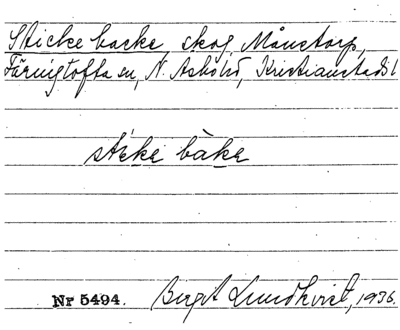 Sticke backe, skog, Månstorp,
Färingtofta sn, N. Åsbohd, Kristianstads l
sticke bake
Nr 5494. Birgit Lundkvist, 1936.